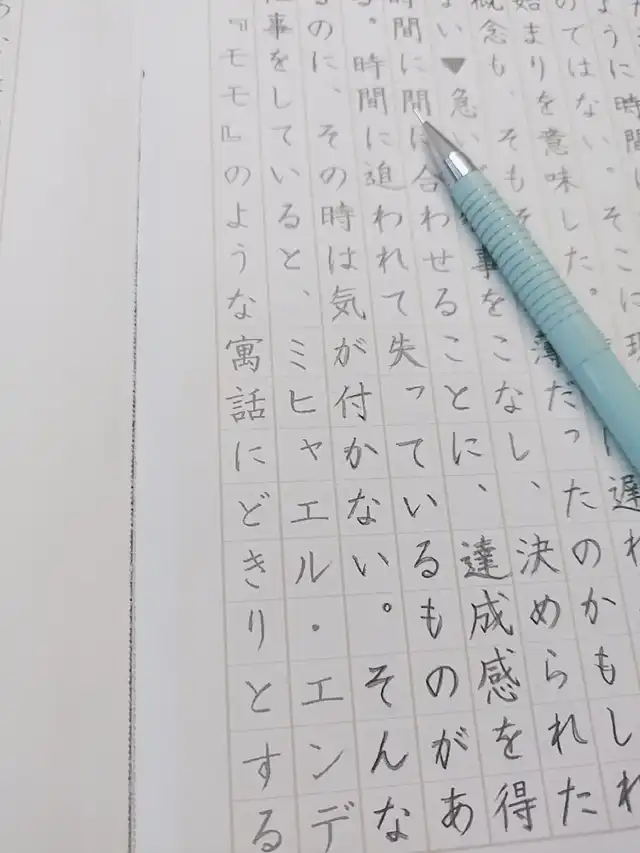 ように時間
のではない。そこに現
始まりを意味した。 に遅れ
概念も、そもそ 薄だったのかもしれ
ない▼急い 事をこなし、決められた
時間に間に合わせることに、達成感を得
る。時間に追われて失っているものがあ
るのに、その時は気が付かない。そんな
事をしていると、ミヒャエル・エンデ
『モモ』のような寓話にどきりとする